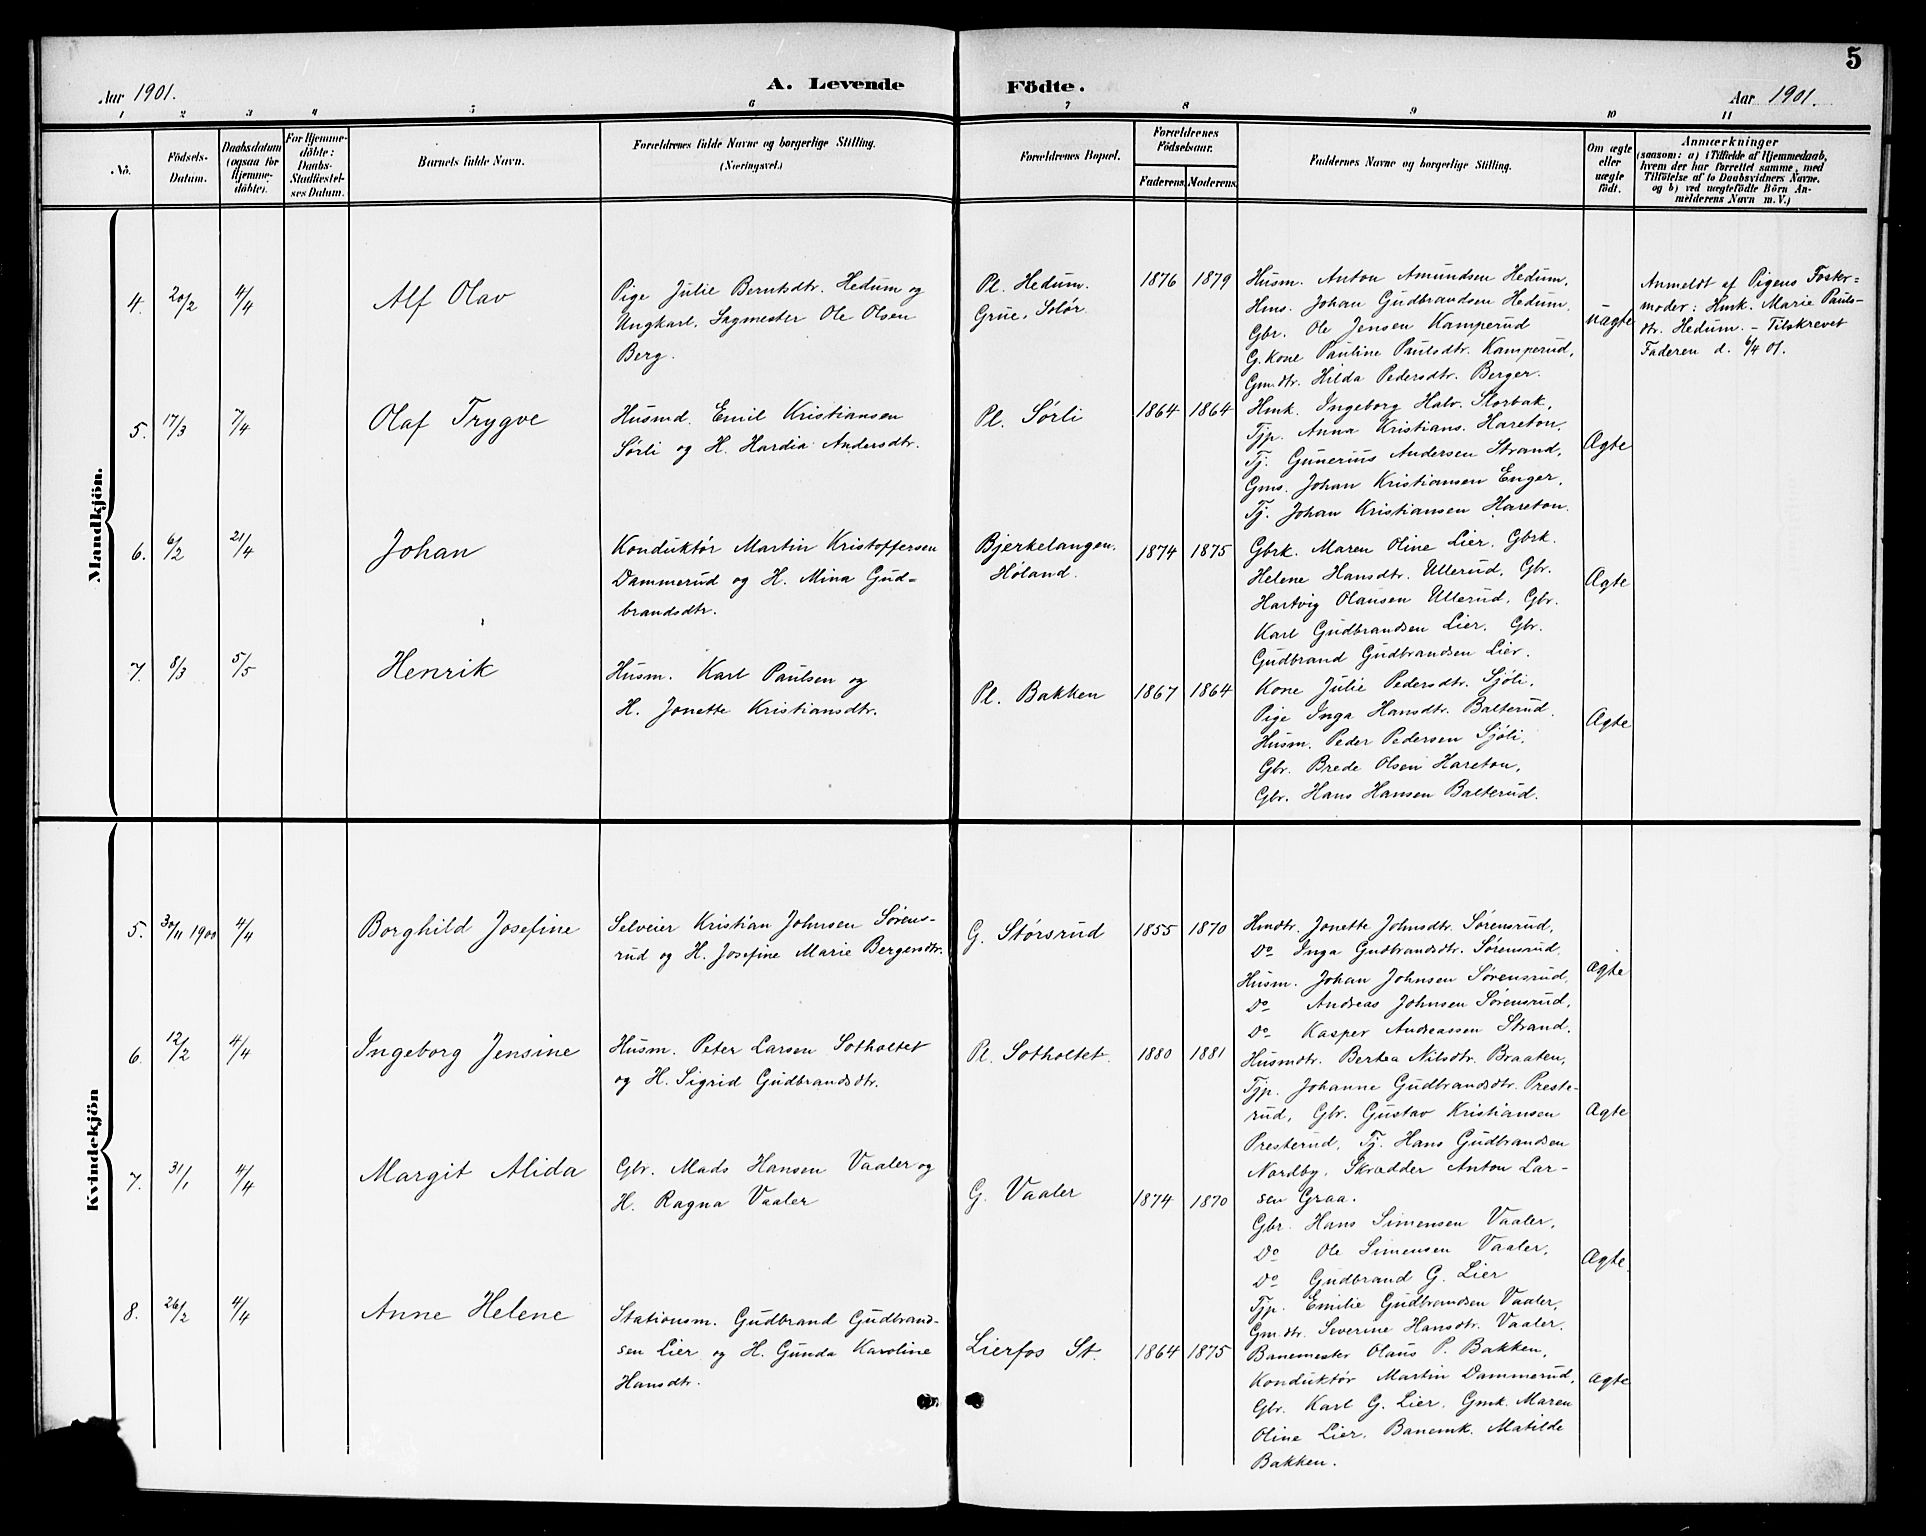 5
Aar 1901.
A. Levende Födte.
Aar 1901.
1 2 3 4 5 6 7 8 9 10 11
No.
Födsels-
Datum.
Daabsdatum
(ogsaa for
Hjemme-
döbte).
For Hjemme-
döbte:
Daabs-
Stadfæstel-
ses Datum.
Barnets fulde Navn.
Forældrenes fulde Navne og borgerlige Stilling.
(Næringsvei.)
Forældrenes Bopæl.
Forældrenes
Födselsaar.
Faderens. Moderens.
Faddernes Navne og borgerlige Stilling.
Om ægte
eller
uægte
födt.
Anmærkninger
(saasom: a) i Tilfælde af Hjemmedaab,
hvem der har forrettet samme, med
Tilföielse af to Daabsvidners Navne.
og b) ved uægtefödte Börn An-
melderens Navn m. V.)
Mandkjön.
4. 20/2 4/4 Alf Olav
Pige Julie Berntsdtr. Hedum og
Ungkarl, Sagmester Ole Olsen
Berg.
Pl. Hedum.
Grue, Solør.
1876 1879
Husm. Anton Amundsen Hedum,
Hms. Johan Gudbrandsen Hedum,
Gbr. Ole Jensen Kamperud
G.kone Pauline Paulsdtr. Kamperud,
Gm.dtr. Hilda Pedersdtr. Berger.
uægte
Anmeldt af Pigens Foster-
moder: Hmk. Marie Pauls-
dtr. Hedum. – Tilskrevet
Faderen d. 6/4 01.
5. 17/3 7/4 Olaf Trygve
Husmd. Emil Kristiansen
Sørli og H. Hardia Andersdtr.
Pl. Sørli
1864 1864
Hmk. Ingeborg Halv. Storbak,
Tjp. Anna Kristians. Hareton,
Tj. Gunerius Andersen Strand,
Gms. Johan Kristiansen Enger,
Tj. Johan Kristiansen Hareton.
Ægte
6. 6/2 21/4 Johan
Konduktør Martin Kristoffersen
Dammerud og H. Mina Gud-
brandsdtr.
Bjerkelangen.
Høland.
1874 1875
Gbrk. Maren Oline Lier, Gbrk.
Helene Hansdtr. Ullerud, Gbr.
Hartvig Olausen Ullerud, Gbr.
Karl Gudbrandsen Lier, Gbr.
Gudbrand Gudbrandsen Lier.
Ægte
7. 8/3 5/5 Henrik
Husm. Karl Paulsen og
H. Jonette Kristiansdtr.
Pl. Bakken
1867 1864
Kone Julie Pedersdtr. Sjøli,
Pige Inga Hansdtr. Balterud,
Husm. Peder Pedersen Sjøli,
Gbr. Brede Olsen Hareton,
Gbr. Hans Hansen Balterud.
Ægte
Kvindekjön
5. 30/11 1900 4/4 Borghild Josefine
Selveier Kristian Johnsen Sørens-
rud og H. Josefine Marie Bergersdtr.
G. Størsrud
1855 1870
Hmdtr. Jonette Johnsdtr. Sørensrud,
Do Inga Gudbrandsdtr. Sørensrud,
Husm. Johan Johnsen Sørensrud,
Do Andreas Johnsen Sørensrud,
Do Kasper Andreassen Strand.
Ægte
6. 12/2 4/4 Ingeborg Jensine
Husm. Peter Larsen Sotholtet
og H. Sigrid Gudbrandsdtr.
Pl. Sotholtet.
1880 1881
Husmdtr. Bertea Nilsdtr. Braaten,
Tjp. Johanne Gudbrandsdtr. Preste-
rud, Gbr. Gustav Kristiansen
Presterud, Tj. Hans Gudbrandsen
Nordby, Skrædder Anton Lar-
sen Graa.
Ægte
7. 31/1 4/4 Margit Alida
Gbr. Mads Hansen Vaaler og
H. Ragna Vaaler
G. Vaaler
1874 1870
Gbr. Hans Simensen Vaaler,
Do Ole Simensen Vaaler,
Do Gudbrand G. Lier
Tjp. Emilie Gudbrandsen Vaaler,
Gm.dtr. Severine Hansdtr. Vaaler.
Ægte.
8. 26/2 4/4 Anne Helene
Stationsm. Gudbrand Gudbrand-
sen Lier og H. Gunda Karoline
Hansdtr.
Lierfos St.
1864 1875
Banemester Olaus P. Bakken,
Konduktør Martin Dammerud,
Gbr. Karl G. Lier, Gmk. Maren
Oline Lier, Banemk. Matilde
Bakken.
Ægte